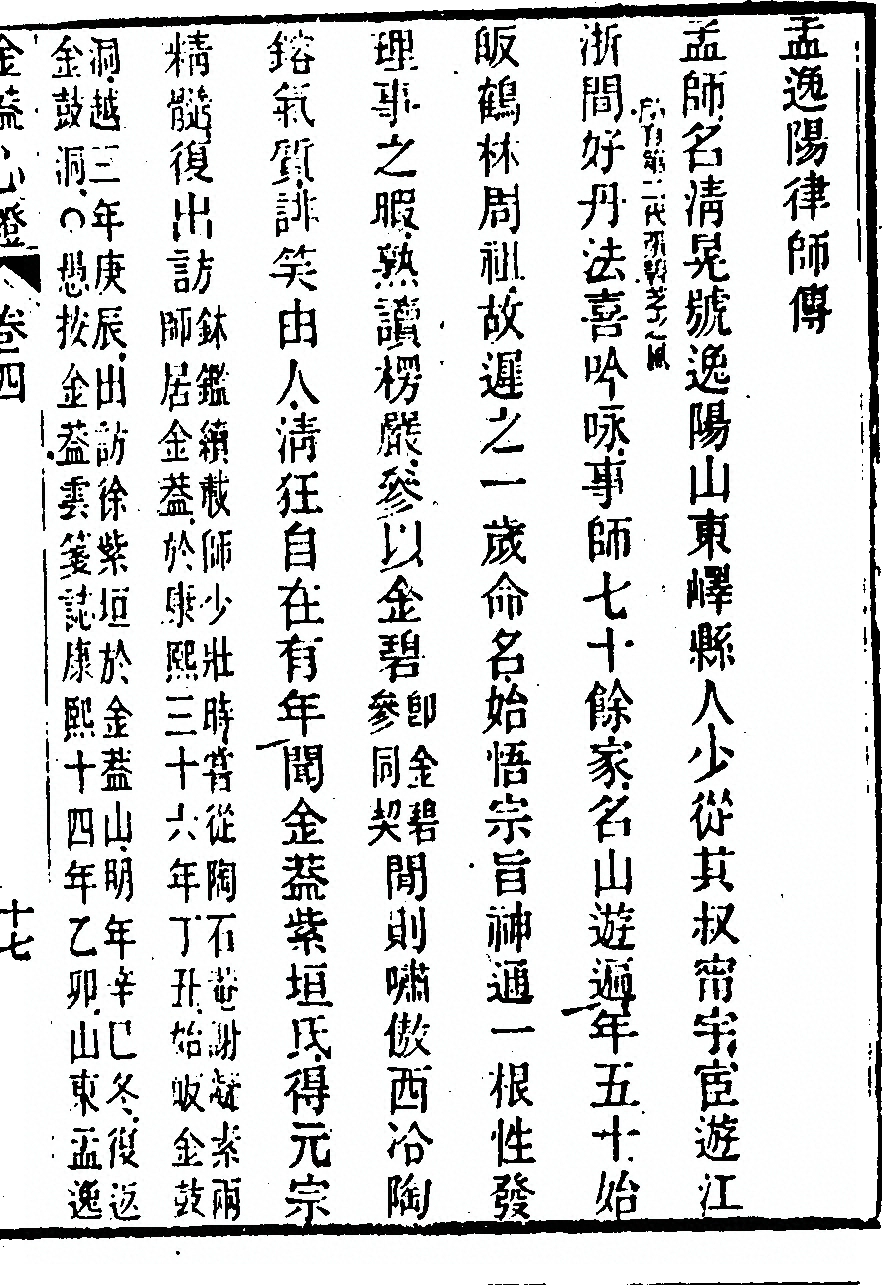 孟逸陽律師傳
孟師名清晃號逸陽山東嶧縣人少從其叔甯宇宦遊江
浙間好丹法喜吟咏事師七十餘家名山遊遍年五十始
皈鶴林周祖故遲之一歲命名始悟宗旨神通一根性發
理事之暇熟讀楞嚴參以金碧
即金碧
參同契
閒則嘯傲西冾陶
鎔氣質誹笑由人清狂自在有年聞金葢紫垣氏得元宗
精髓復出訪
鉢鑑續載師少壯時嘗從陶石菴謝凝素兩
師居金葢於康熙三十六年丁丑始皈金鼓
洞越三年庚辰出訪徐紫垣於金葢山明年辛巳冬復返
金鼓洞○愚按金葢雲箋誌康熙十四年乙卯山東孟逸
金葢心燈
卷四
十七